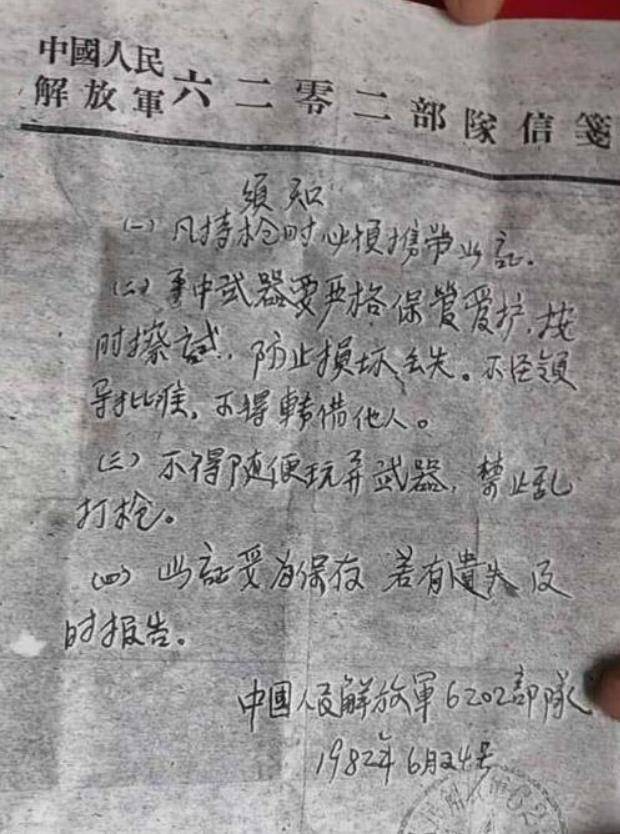 中國人民
解放軍六二零二部隊信箋
須知
(一) 凡持枪时必慎携带此証.
(二) 手中武器要严格保管爱护,按
时擦试,防止损坏丢失。不经领
导批准,不得轉借他人。
(三) 不得随便玩弄武器,禁止乱
打枪。
(四) 此証妥为保存 若有遺失 及
时报告。
中國人民解放軍6202部隊
1982年6月24号